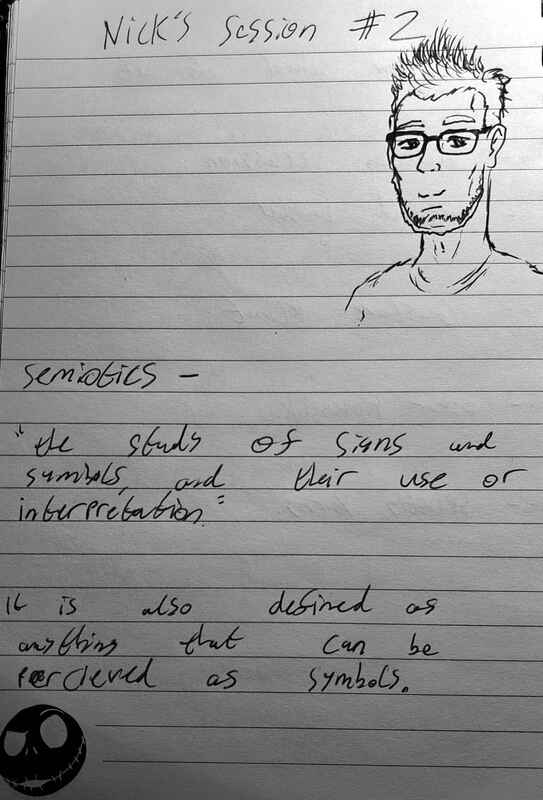 Nick's Session #2
Semiotics -
"the study of signs and
symbols, and their use or
interpretation."
It is also defined as
anything that can be
percieved as symbols.